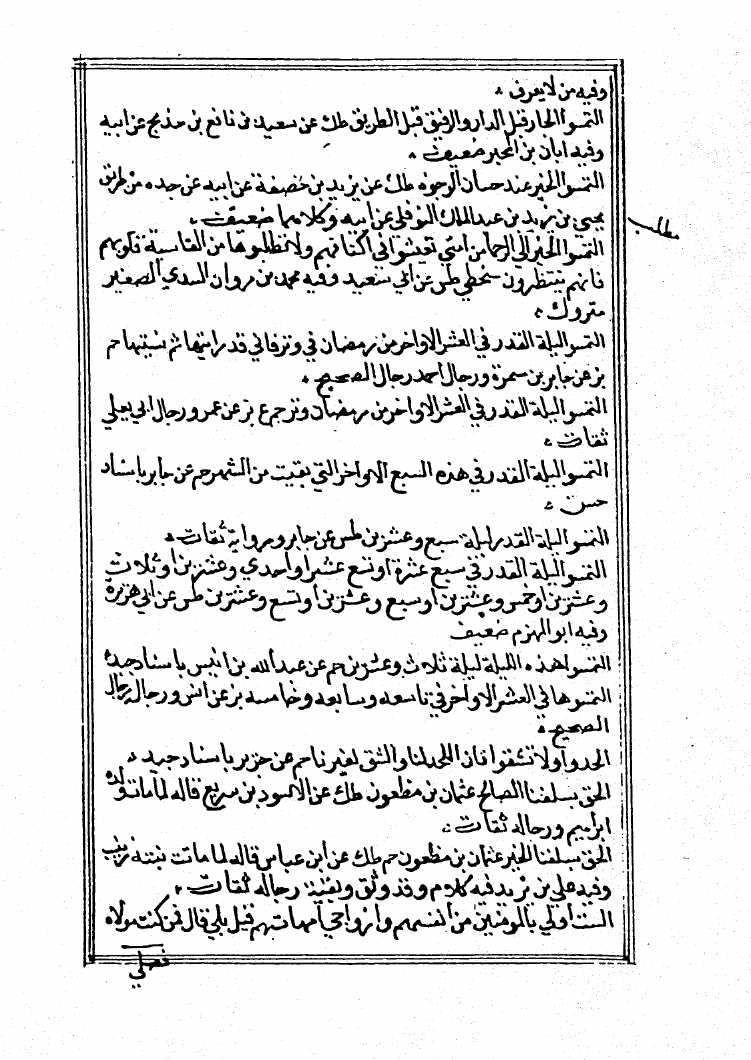 وفيه من لا يعرف ۰
التمسوا الجار قبل الدار والرفيق قبل الطريق طك عن سعيد بن نافع بن خديج عن ابيه
وفيه ابان بن المحبر ضعيف ۰
التمسوا الخير عند حسان الوجوه طك عن يزيد بن خصفة عن ابيه عن جده من طريق
يحيى بن يزيد بن عبد الملك النوفلي عن ابيه وكلاهما ضعيف ۰
مطلب
التمسوا الخير الى الرحماء من امتي تعيشوا في اكنافهم ولا تطلبوها من القاسية قلوبهم
فانهم ينتظرون سخطي طس عن ابي سعيد وفيه محمد بن مروان السدي الصغير
متروك ۰
التمسوا ليلة القدر في العشر الاواخر من رمضان في وتر فاني قد رايتها ثم نسيتها حم
بز عن جابر بن سمرة ورجال احمد رجال الصحيح ۰
التمسوا ليلة القدر في العشر الاواخر من رمضان وتر جم ع بز عن عمر ورجال ابي يعلي
ثقات ۰
التمسوا ليلة القدر في هذه السبع الاواخر التي بقيت من الشهر حم عن جابر باسناد
حسن ۰
التمسوا ليلة القدر ليلة سبع وعشرين طس عن جابر ورواية ثقات ۰
التمسوا ليلة القدر في سبع عشرة او تسع عشر او احدي وعشرين او ثلاث
وعشرين او خمس وعشرين او سبع وعشرين او تسع وعشرين طس عن ابي هريرة
وفيه ابو المهزم ضعيف
التمسوا هذه الليلة ليلة ثلاث وعشرين حم عن عبد الله بن انيس باسناد جيد
التمسوها في العشر الاواخر في تاسعه وسابعه وخامسه بز عن انس ورجال رجال
الصحيح ۰
الحدوا ولا تشقوا فان اللحد لنا والشق لغيرنا حم عن جرير باسناد جيد ۰
الحق بسلفنا الصالح عثمان بن مظعون طك عن الاسود بن سريع قاله لما مات ولده
ابراهيم ورجاله ثقات ۰
الحق بسلفنا الخير عثمان بن مظعون حم طك عن ابن عباس قاله لما ماتت بنته زينب
وفيه علي بن زيد فيه كلام وقد وثق وبقية رجاله ثقات ۰
الست اولي بالمومنين من انفسهم وازواجي امهاتهم قيل بلي قال فمن كنت مولاه
فعلي